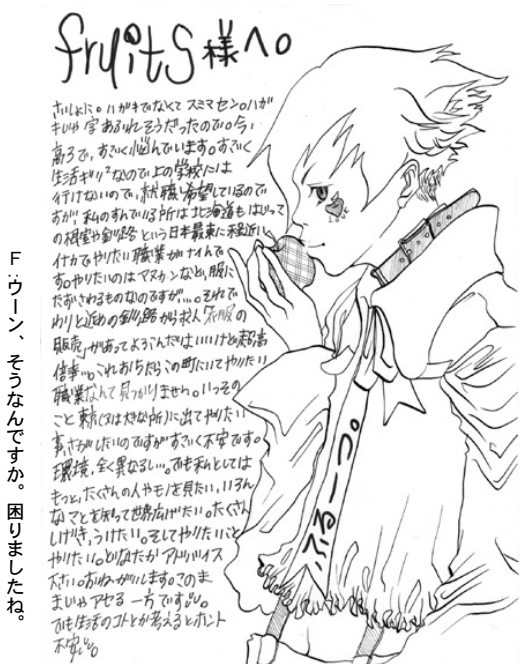 fruits 様へ。
さいしょに。ハガキでなくてスミマセン。ハガ
キじゃ字あふれそうだったので。今、
高3で、すごく悩んでいます。すごく
生活ギリギリなので上の学校には
行けないので、就職希望しているので
すが、私のすんでいる所は北海道もはじって
の根室や釧路という日本最東に程近い
イナカでやりたい職業がナイんで
す。やりたいのはマヌカンなど、服に
たずさわるものなのですが…。それで
わりと近めの釧路から求人「衣服の
販売」があってよろこんだはいいけど超高
倍率…。これおちたらこの町にいてやりたい
職業なんて見つかりません。いっその
こと東京(又は大きな所)に出てやりたい
事、さがしたいのですがすごく不安です。
環境、全く異なるし…。でも私としては
もっと、たくさんの人やモノを見たい、いろん
なことを知って世界広げたい。たくさん
しげき、うけたい。そしてやりたいこと
やりたい。どなたかアドバイス
下さい。おねがいします。このま
まじゃアセる一方です。
でも生活のコトとか考えるとホント
不安。
LOVE
ふるーつ。
F:ウーン、そうなんですか。困りましたね。